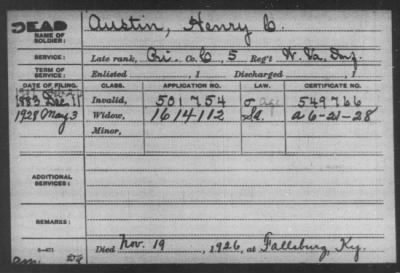 DEAD
NAME OF SOLDIER:
Austin, Henry C.
SERVICE:
Late rank, Pri. Co. C, 5 Reg't W. Va. Inf.
TERM OF SERVICE:
Enlisted , 1 Discharged , 1
DATE OF FILING. CLASS. APPLICATION NO. LAW. CERTIFICATE NO.
1883 Dec 11 Invalid, 501754 549766
1928 May 3 Widow, 1614112 a 6-21-28
Minor,
ADDITIONAL SERVICES:
REMARKS:
Died Nov. 19 , 1926, at Fallsburg, Ky.